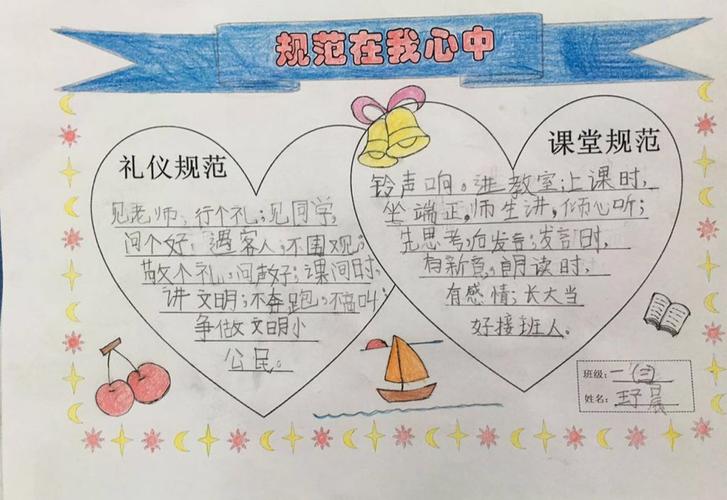 规范在我心中
礼仪规范
见老师，行个礼；见同学，
问个好；遇客人；不围观；
敬个礼，问好；课间时，
讲文明；不奔跑；不高叫；
争做文明小
公民。
课堂规范
铃声响。进教室；上课时，
坐端正，师生讲，倾心听；
先思考，后发言；发言时，
有新意，朗读时，
有感情；长大当
好接班人。
班级：一
姓名：王子晨